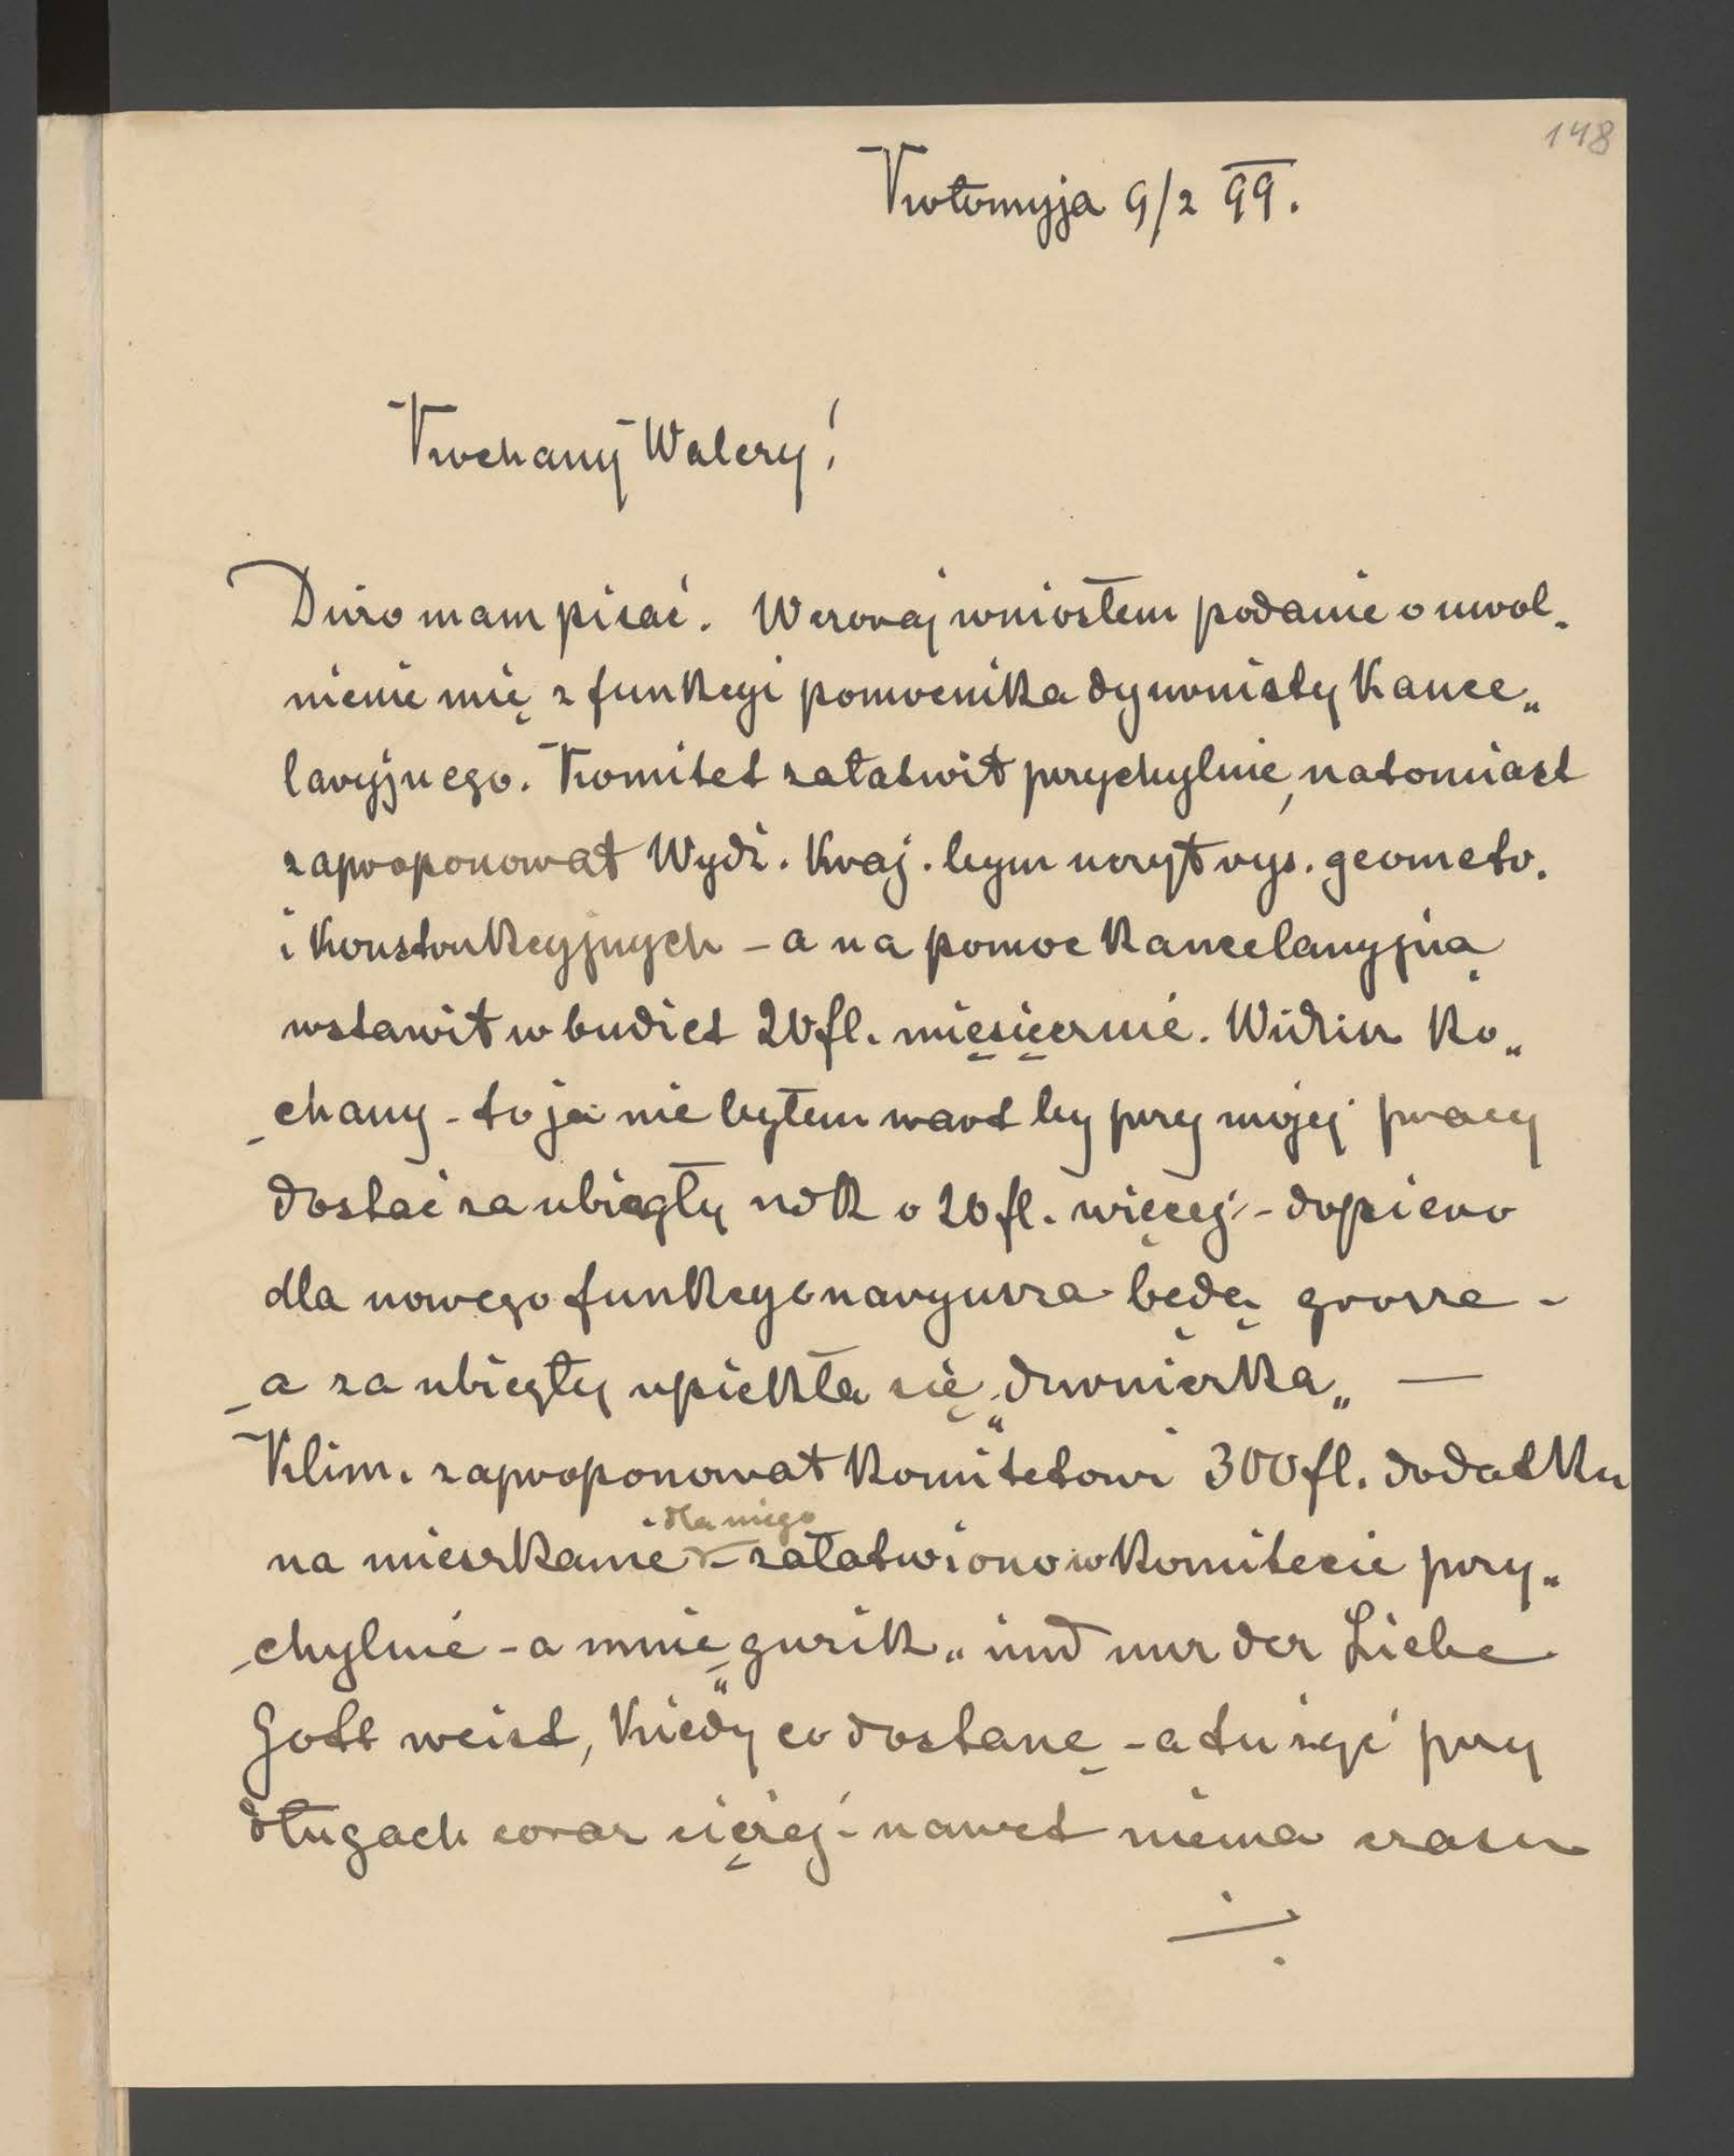 148
Kołomyja 9/2 99.
Kochany Walery!
Dużo mam pisać. Wczoraj wniosłem podanie o uwol-
nienie mię z funkcyi pomocnika dyurnisty kance„
laryjnego. Komitet załatwił przychylnie, natomiast
zaproponował Wydz. Kraj. bym uczył rys. geometr.
i konstrukcyjnych – a na pomoc kancelaryjną
wstawił w budżet 20 fl. miesięcznie. Widzisz ko„
chany – to ja nie byłem wart by przy mojej pracy
dostać za ubiegły rok o 20 fl. więcej – dopiero
dla nowego funkcyonaryusza będą grosze –
– a za ubiegły upiekła się „durnicka„ —
Klim. zaproponował komitetowi 300 fl. dodatku
dla niego
na mieszkanie – załatwiono w komitecie przy„
chylnie – a mnie „guzik„ und nur der Liebe
Gott weist, kiedy co dostanę – a tu żyć przy
długach coraz ciężej – nawet niema czasu